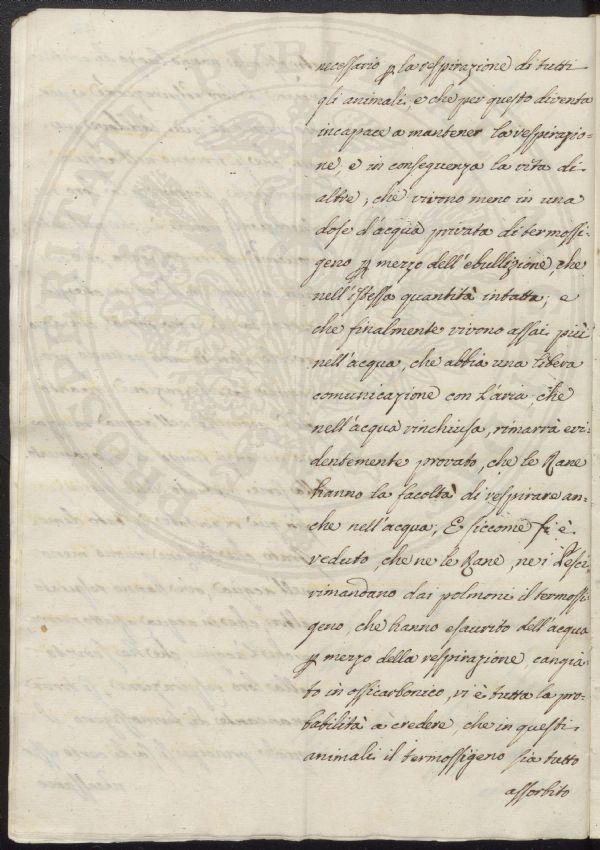 necessario p la respirazione di tutti
gli animali, e che per questo diventa
incapace a mantener la respirazio=
ne, e in conseguenza la vita di
altre, che vivono meno in una
dose d'acqua privata di termossi=
geno p mezzo dell'ebullizione, che
nell'istessa quantità intatta; e
che finalmente vivono assai più
nell'acqua, che abbia una libera
comunicazione con l'aria, che
nell'acqua rinchiusa, rimarrà evi=
dentemente provato, che le Rane
hanno la facoltà di respirare an=
che nell'acqua; E siccome si è
veduto, che ne le Rane, ne i Pesci
rimandano dai polmoni il termossi=
geno, che hanno esaurito dell'acqua
p mezzo della respirazione, cangia=
to in ossicarbonico, vi è tutta la pro=
babilità a credere, che in questi
animali il termossigeno sia tutto
assorbito